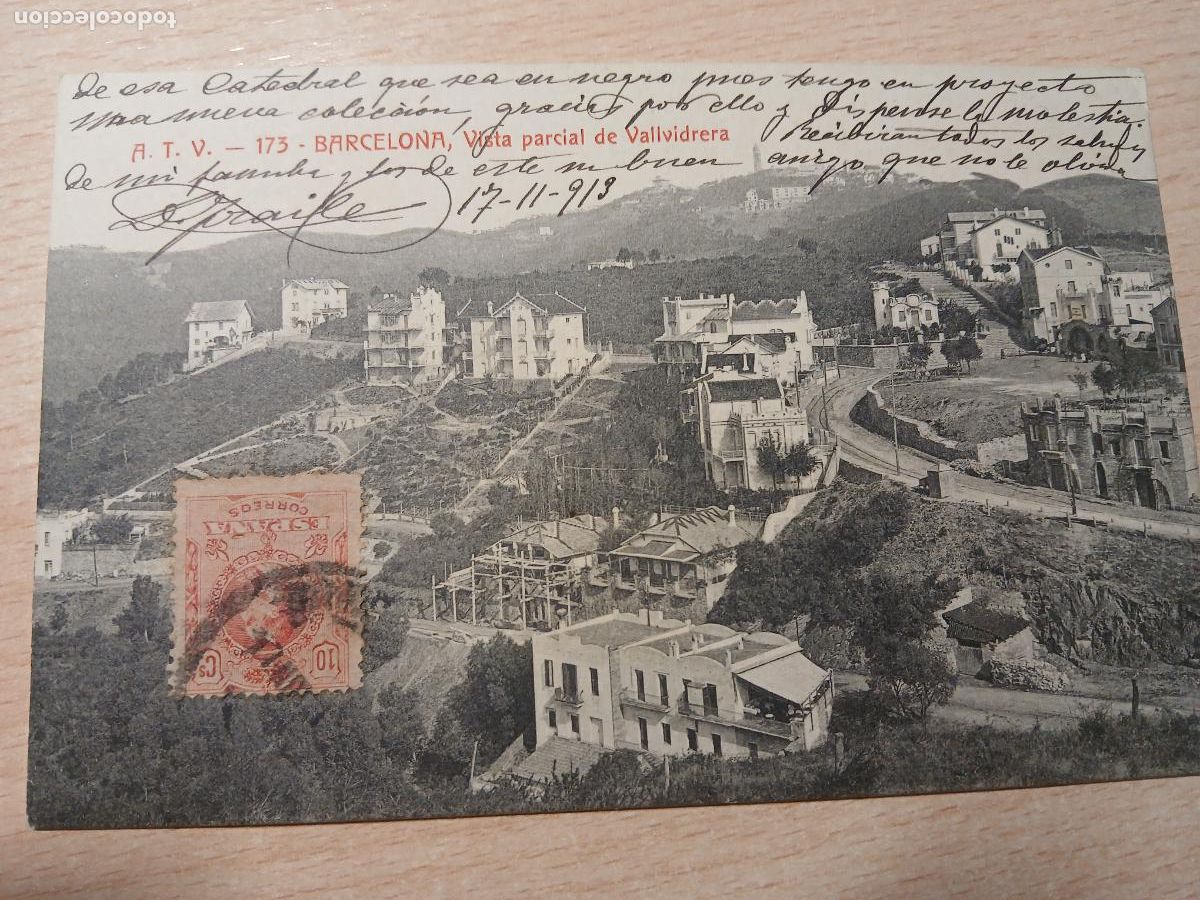 todocoleccion
de esa Catedral que sea en negro pues tengo en proyecto
una nueva colección, gracias por ello y dispense la molestia.
A. T. V. — 173 - BARCELONA, Vista parcial de Vallvidrera
Recibiran todos los saludos
de mi familia y los de este su buen amigo que no le olvida
17-11-913
CORREOS
ESPAÑA
10 Cs